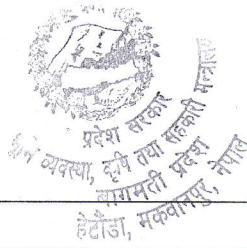 प्रदेश सरकार
व्यवस्था, कृषि तथा सहकारी मन्त्रालय
बागमती प्रदेश
हेटौंडा, मकवानपुर, नेपाल